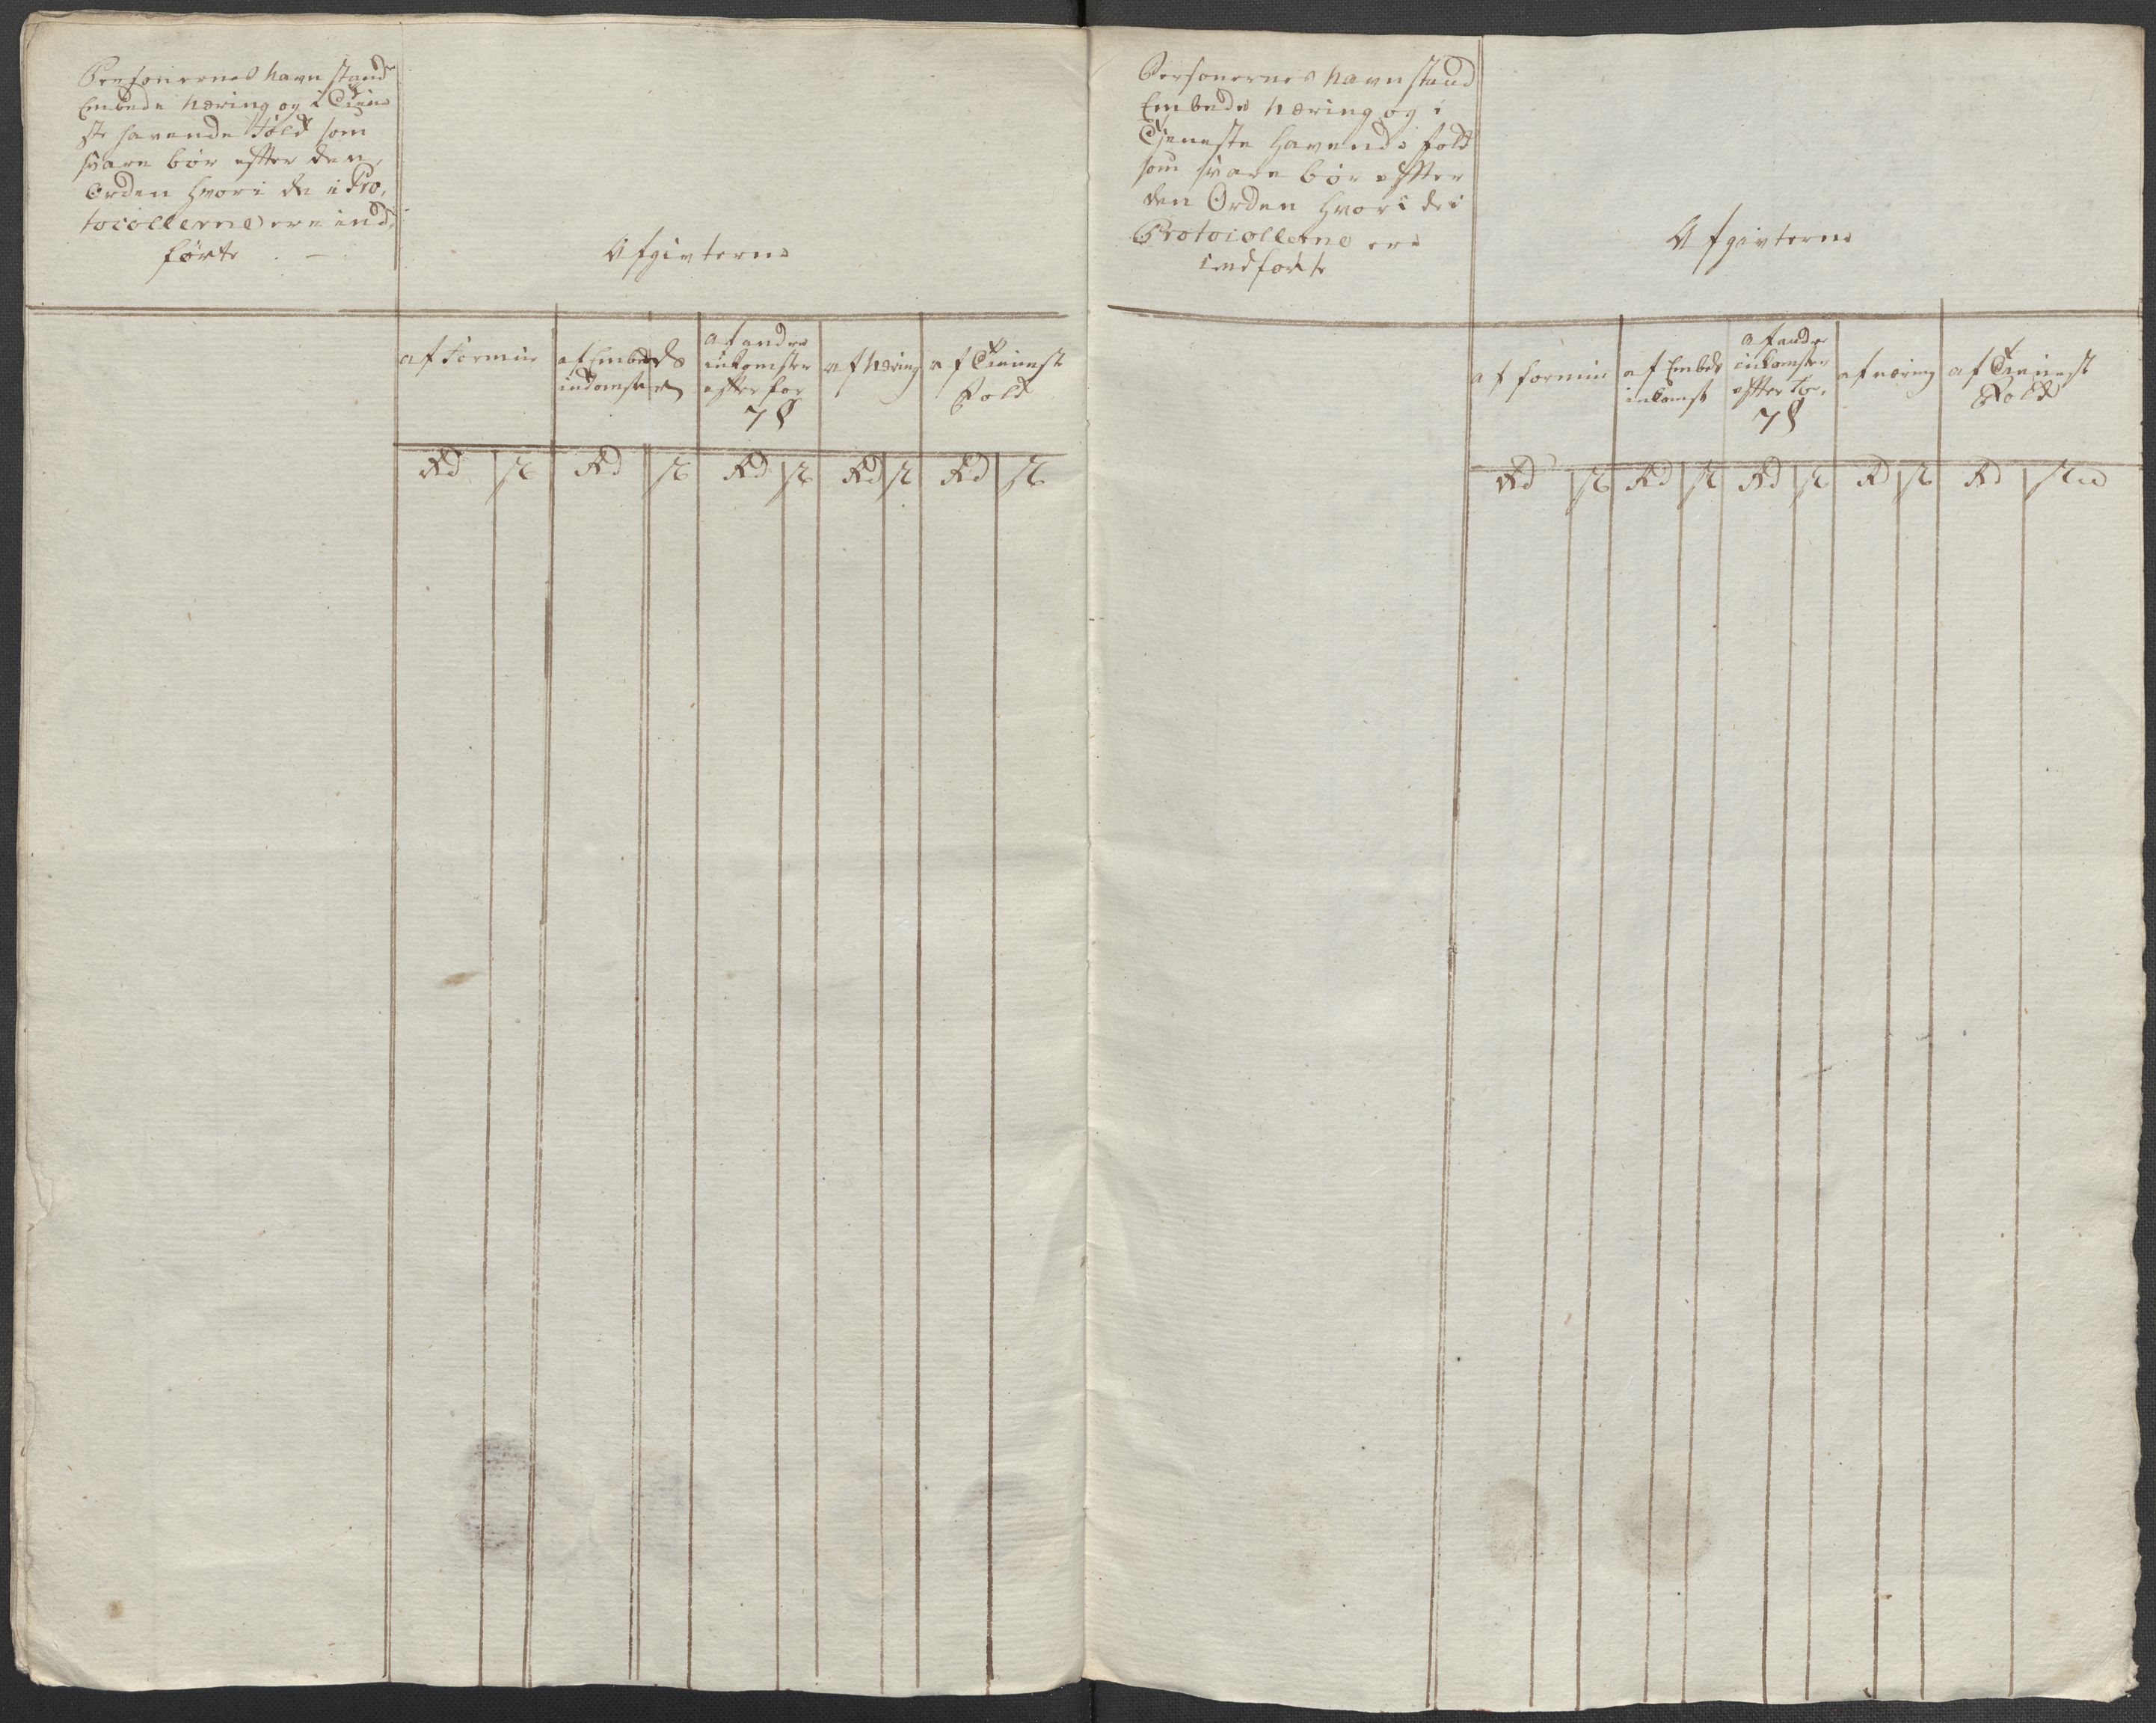 Personernes Navn stand
Embede Næring og i Tiene
ste havende Fold som
svare bør efter den
Orden hvori de i Pro,
tocollerne ere ind,
førte
Afgivterne
af Formue
af Embeds
indomster
af andre
inkomster
efter for
7 §
af Næring
af Tieneste
Fold
Rd | s | Rd | s | Rd | s | Rd | s | Rd | s
Personernes Navn stand
Embede Næring og i
Tjeneste Havende Fold
som svare bør efter
den Orden hvori de i
Protocollerne ere
indførte
Afgivterne
af formue
af Embeds
inkomst
af andre
inkomster
efter for,
7 §
af næring
af Tienest
Fold
Rd | s | Rd | s | Rd | s | Rd | s | Rd